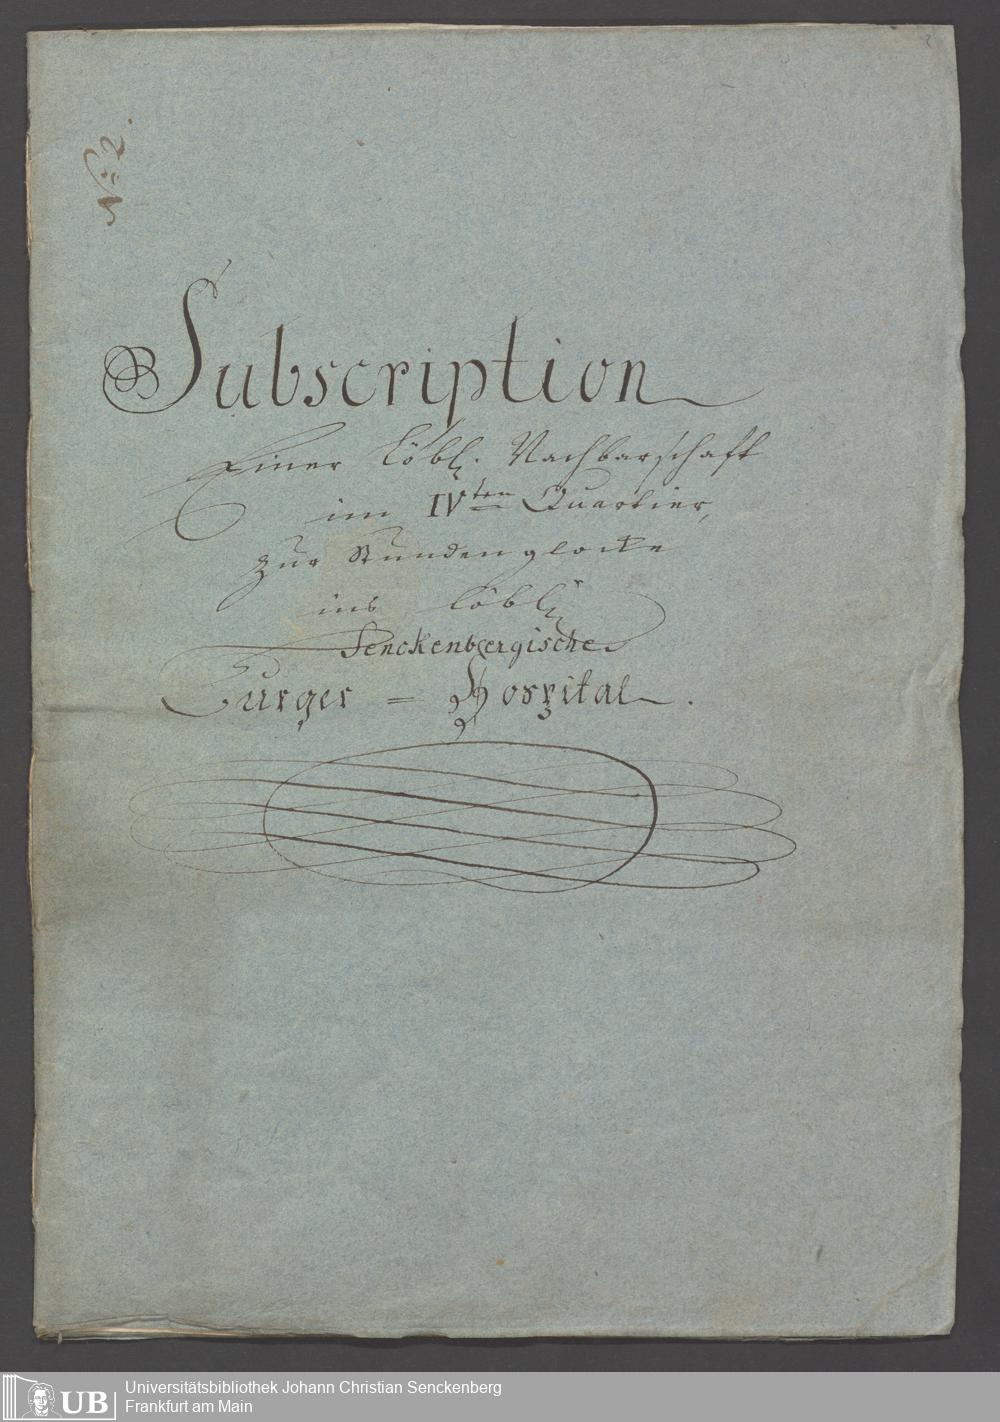 No: 2.
Subscription
Einer löbl. Nachbarschaft
im IVten Quartier,
zur Stundenglocke
ins löbl.
Senckenbergische
Burger = Hospital.
UB
Universitätsbibliothek Johann Christian Senckenberg
Frankfurt am Main